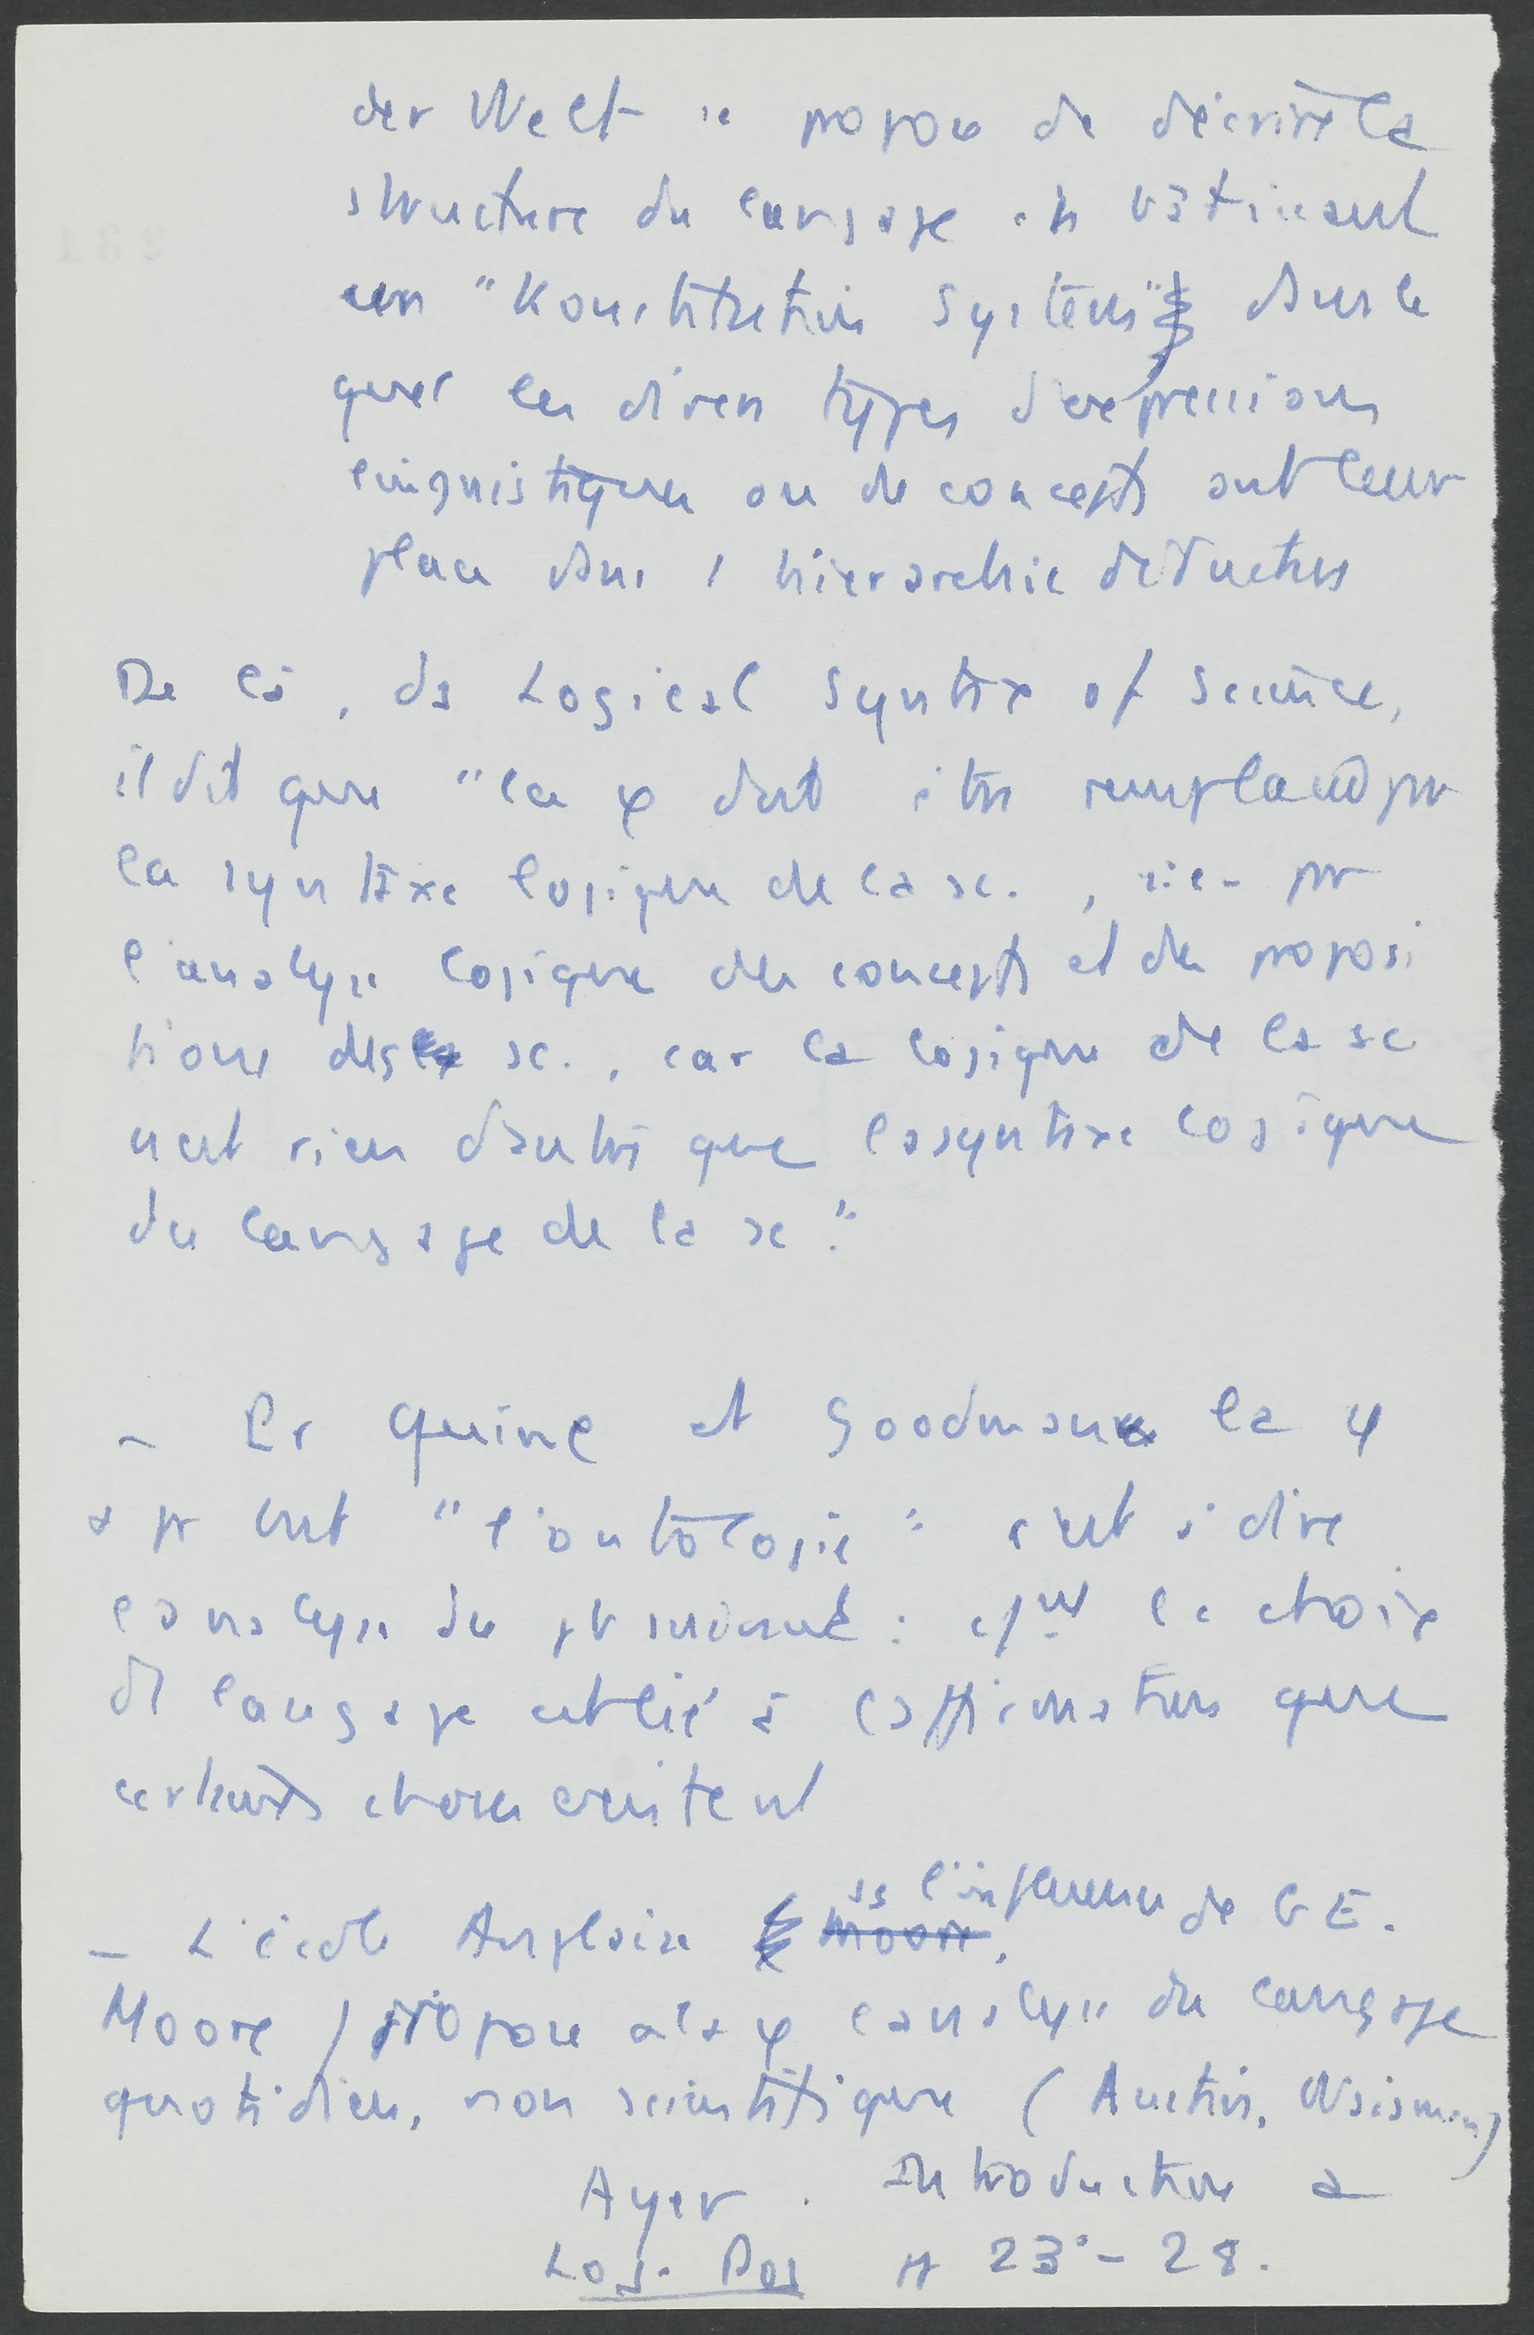 der Welt" se propose de décrire la
structure du langage en bâtissant
un "Konstitution System" dans le
quel les divers types d'expressions
linguistiques ou de concepts ont leur
place dans 1 hierarchie deductive
De là, ds Logical Syntax of Science,
il dit que "la φ doit être remplacée par
la syntaxe logique de la sc., i.e. par
l'analyse logique des concepts et des proposi
tions des sc., car la logique de la sc
n'est rien d'autre que la syntaxe logique
du langage de la sc."
- Pr Quine et Goodman la φ
a pr but "l'ontologie" c'est à dire
l'analyse du : le choix
d' langage est lié à l'affirmation que
certaines choses existent
- L'école Anglaise ss l'influence de G E.
Moore, propose a la φ l'analyse du langage
quotidien, non scientifique (Austin, Waismann)
Ayer. Introduction a
Log. Pos p 23 - 28.